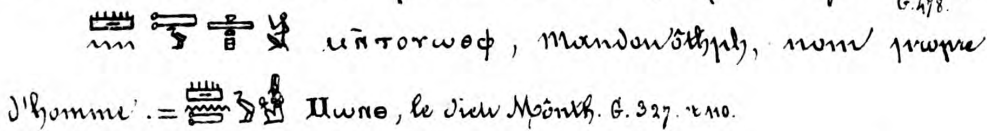 G. 478.
𓏠𓈖 ⲙⲛ̄ⲧⲟⲩⲱⲑⲫ, Mandouôthph, nom propre
d'homme. = 𓏠𓈖 Ⲙⲱⲛⲑ, le dieu Mônth. G. 327. et 110.